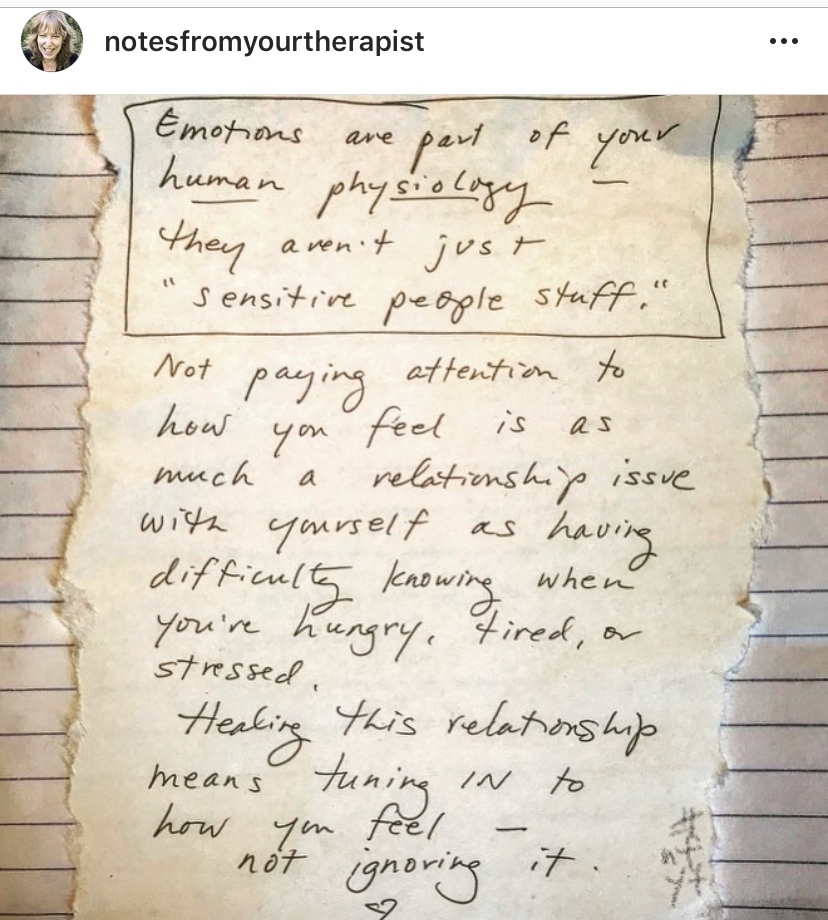 notesfromyourtherapist
Emotions are part of your
human physiology —
they aren't just
"sensitive people stuff."
Not paying attention to
how you feel is as
much a relationship issue
with yourself as having
difficulty knowing when
you're hungry, tired, or
stressed.
Healing this relationship
means tuning IN to
how you feel —
not ignoring it.